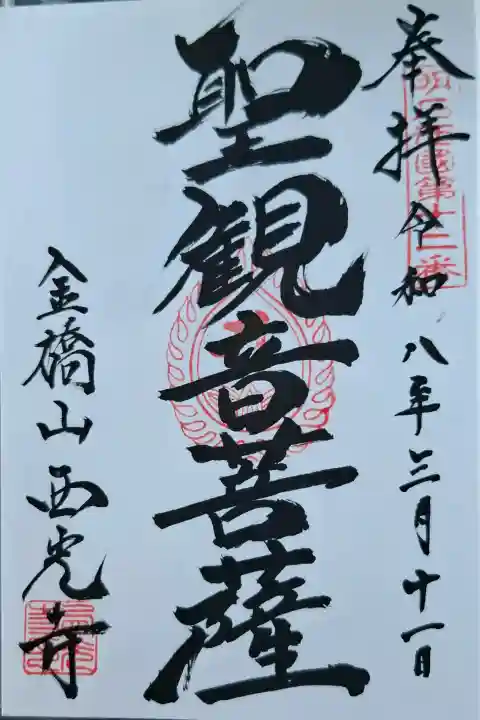 奉拝 令和八年三月十一日
明石西國第十二番
聖観音菩薩
金橋山 西光寺